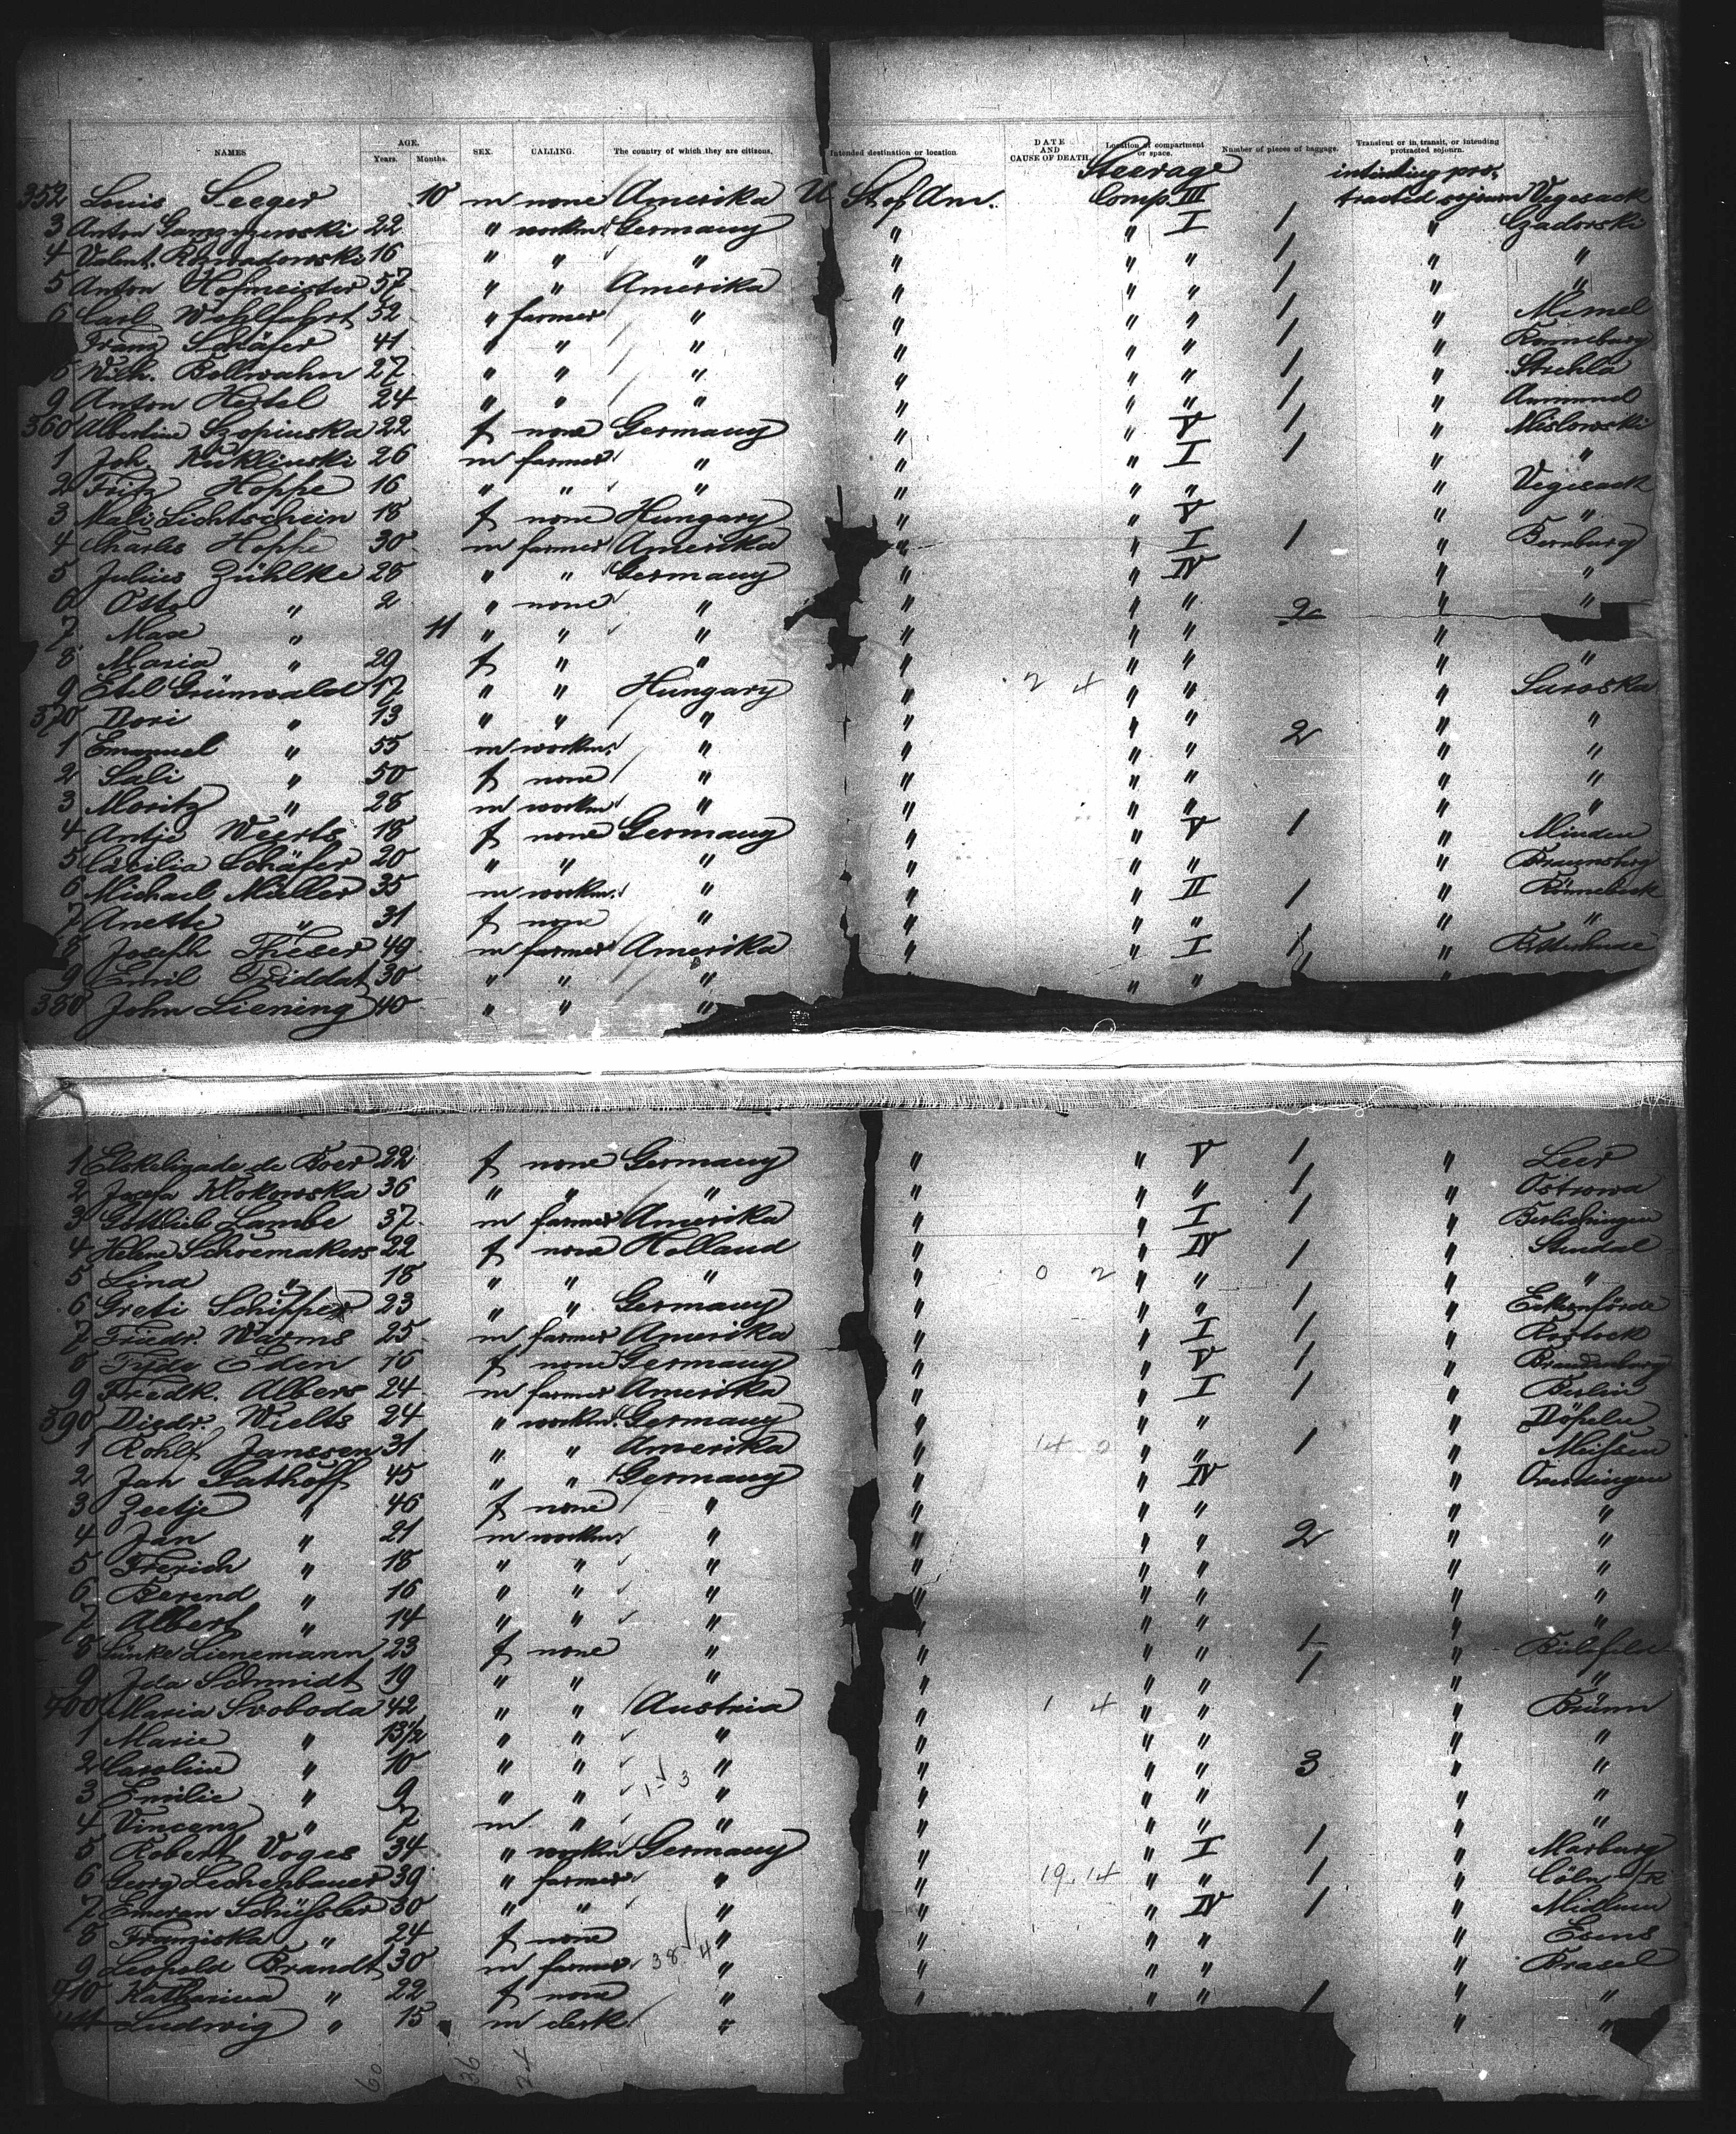 NAMES AGE. Years. Months. SEX. CALLING. The country of which they are citizens. Intended destination or location. DATE AND CAUSE OF DEATH. Location of compartment or space. Number of pieces of baggage. Transient or in transit, or intending protracted sojourn.
Steerage intending pro-
352 Louis Seeger 10 m none Amerika U St. of Am. Comp. III tracted sojourn Vegesack
3 Anton 22 " workm. Germany " " I 1 " Czadorski
4 Valent. 16 " " " " " " 1 " "
5 Anton Hofmeister 57 " " Amerika " " " 1 " "
6 Carl Wohlfahrt 52 " farmer " " " " 1 " Memel
Franz Schäfer 41 " " " " " " 1 " Rönneburg
8 Wilh. Bollwahn 27 " " " " " " 1 " Strehla
9 Anton Hertel 24 " " " " " " 1 " Aumund
360 Albertine Szopinska 22 f none Germany " " V 1 " Mislowski
1 Joh. Kuklinski 26 m farmer " " " I 1 " "
2 Fritz Hoppe 16 " " " " " " " Vegesack
3 Mali Lichtschein 18 f none Hungary " " V " "
4 Charles Hoppe 30 m farmer Amerika " " I 1 " Bernburg
5 Julius Zühlke 28 " " Germany " " IV " "
6 Otto " 2 " none " " " " 2 " "
7 Max " 11 " " " " " " "
8 Maria " 29 f " " " " " " "
9 Etel Grünwald 17 " " Hungary " 2 4 " " Saroska
370 Dori " 13 " " " " " " " "
1 Emanuel " 55 m workm. " " " " 2 " "
2 Sali " 50 f none " " " " " "
3 Moritz " 28 m workm. " " " " " "
4 Antje Weerts 18 f none Germany " " V 1 " Minden
5 Cäcilia Schäfer 20 " " " " " " " Braunsbrg
6 Michael Müller 35 m workm. " " " II 1 " Rönnebeck
7 Anette " 31 f none " " " " " "
8 Joseph Theser 49 m farmer Amerika " " I 1 "
9 Emil Friddat 30 " " " " " " 1 "
380 John Liening 40 " " " " "
1 de Boer 22 f none Germany " " V 1 " Leer
2 Josefa Klokowska 36 " " " " " " 1 " Ostrowa
3 Gottlieb Lambe 37 m farmer Amerika " " I 1 " Berlichingen
4 Helene Schoemakers 22 f none Holland " " IV 1 " Stendal
5 Lina " 18 " " " " 0 2 " " " "
6 Greti Schipper 23 " " Germany " " " 1 " Eckernförde
7 Friedr. Warms 25 m farmer Amerika " " I 1 " Rostock
8 Tjide Eden 16 f none Germany " " V 1 " Brandenburg
9 Fredk. Albers 24 m farmer Amerika " " I 1 " Berlin
390 Diedr. Wielts 24 " workm. Germany " " " " Döpeln
1 Rohlf Janssen 31 " " Amerika " 14 2 " " 1 " Meissen
2 Jan Fathoff 45 " " Germany " " IV "
3 Zeetje " 46 f none " " " " " "
4 Jan " 21 m workm. " " " " 2 " "
5 Frerich " 18 " " " " " " " "
6 Berend " 16 " " " " " " " "
7 Albert " 14 " " " " " " " "
8 Sünke Lienemann 23 f none " " " " 1 " Bielefeld
9 Ida Schmidt 19 " " " " " " 1 " "
400 Maria Svoboda 42 " " Austria " 1 4 " " " Brünn
1 Marie " 13½ " " " " " " " "
2 Caroline " 10 " " " " " " 3 " "
3 Emilie " 9 " " 1 3 " " " " " "
4 Vincenz " 7 m " " " " " " "
5 Robert Voges 34 " workm. Germany " " I 1 " Marburg
6 Georg Lechenbauer 39 " farmer " " 19 14 " " 1 " Cöln a/R
7 Emeran Schüssler 30 " " " " " IV 1 " Midlum
8 Franziska " 24 f none " " " " " Esens
9 Leopold Brandt 30 m farmer 38 4 " " " " " Brasel
410 Katharina " 22 f none " " " " 1 " "
411 Ludwig " 15 m clerk " " "
60 36 24